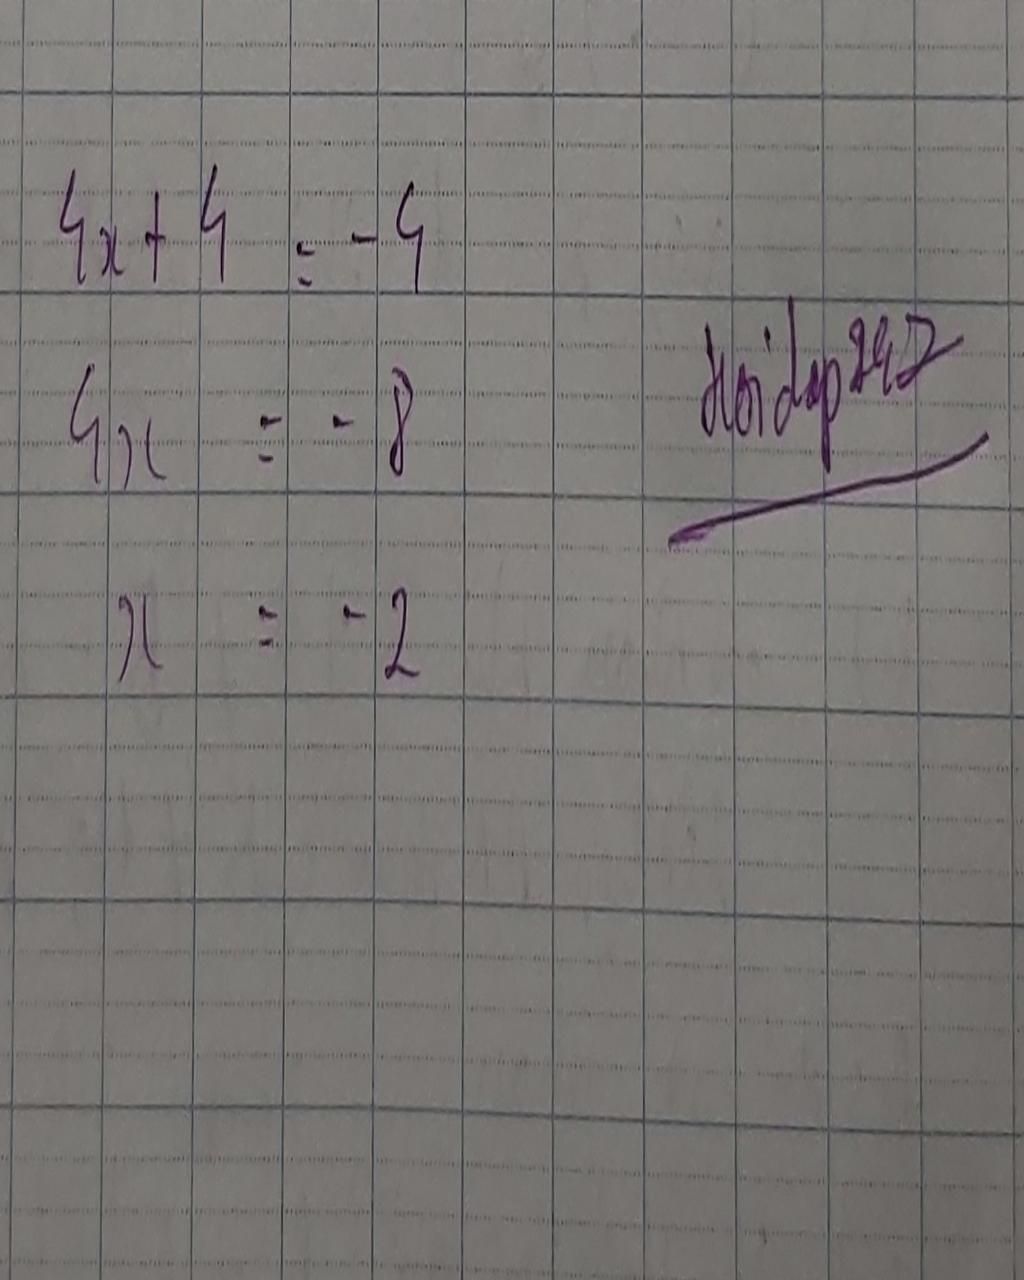 4x + 4 = -4
Hoidap247
4x = -8
x = -2